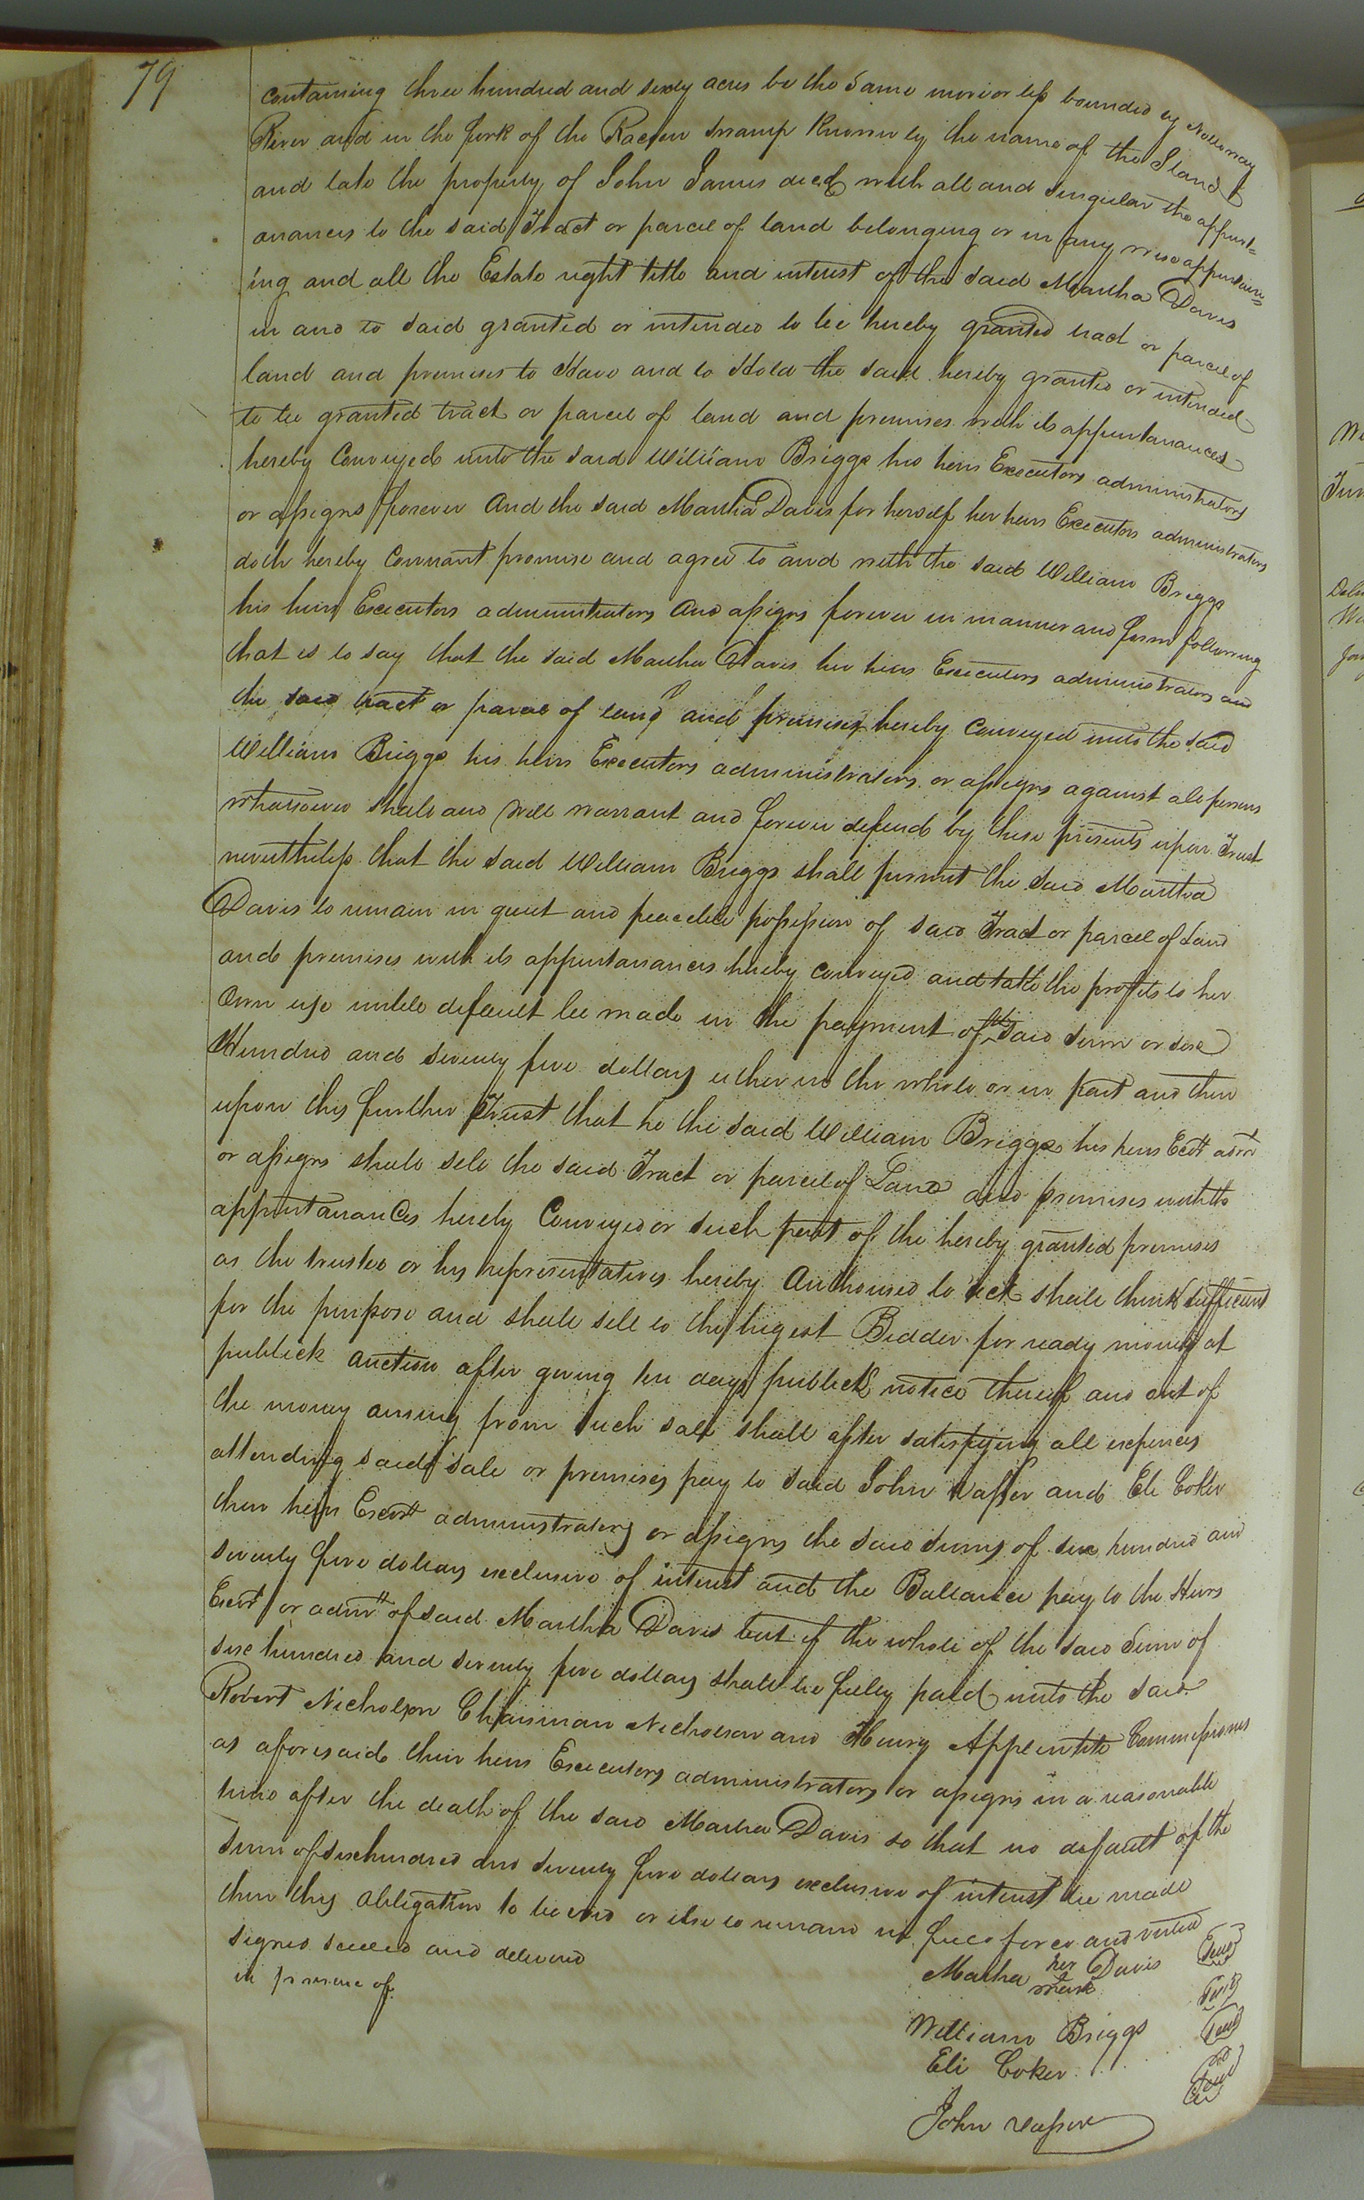 79
containing three hundred and sixty acres be the same more or less bounded by Nottoway
River and in the fork of the Racoon Swamp Known by the name of the Island &
and late the property of John James decd with all and singular the appurt=
anances to the said Tract or parcel of land belonging or in any wise appertain=
ing and all the Estate right title and interest of the said Martha Davis
in and to said granted or intended to be hereby granted tract or parcel of
land and premises to Have and to Hold the said hereby granted or intended
to be granted tract or parcel of land and premises with its appurtanances
hereby Conveyed unto the said William Briggs his heirs Executors administrators
or assigns forever And the said Martha Davis for herself her heirs Executors administrators
doth hereby Covenant promise and agree to and with the said William Briggs
his heirs Executors administrators and assigns forever in manner and form following
that is to say that the said Martha Davis her heirs Executors administrators and
the said tract or parcel of land and premises hereby Conveyed unto the said
William Briggs his heirs Executors administrators or assigns against all persons
whatsoever shall and will warrant and forever defend by these presents upon Trust
nevertheless that the said William Briggs shall permit the said Martha
Davis to remain in quiet and peacable possession of said Tract or parcel of Land
and premises with its appurtanances hereby conveyed and take the profits to her
own use untill default be made in the payment of the said sum or six
Hundred and seventy five dollars either in the whole or in part and then
upon this further Trust that he the said William Briggs his heirs Exors admr
or assigns shall sell the said Tract or parcel of Land and premises with the
appurtanances hereby Conveyed or such part of the hereby granted premises
as the trustee or his representatives hereby Authorised to act shall think sufficient
for the purpose and shall sell to the higest Bidder for ready money at
publick auction after giving ten days publick notice thereof and out of
the money arising from such sale shall after satisfying all expences
attending said sale or premises pay to said John Vasser and Eli Coker
their heirs Exors administrators or assigns the said sums of six hundred and
seventy five dollars exclusive of interest and the Ballance pay to the Heirs
Exors or admrs of said Martha Davis but if the whole of the said sum of
six hundred and seventy five dollars shall be fully paid unto the said
Robert Nicholson Chrisman Nicholson and Henry Applewhite Commissioners
as aforesaid their heirs Executors administrators or assigns in a reasonable
time after the death of the said Martha Davis so that no default of the
sum of six hundred and seventy five dollars exclusive of interest be made
then this obligation to be void or else to remain in full force and virtue
signed sealed and delivered
in presence of
Martha her mark Davis Seal
William Briggs Seal
Eli Coker Seal
John Vasser Seal